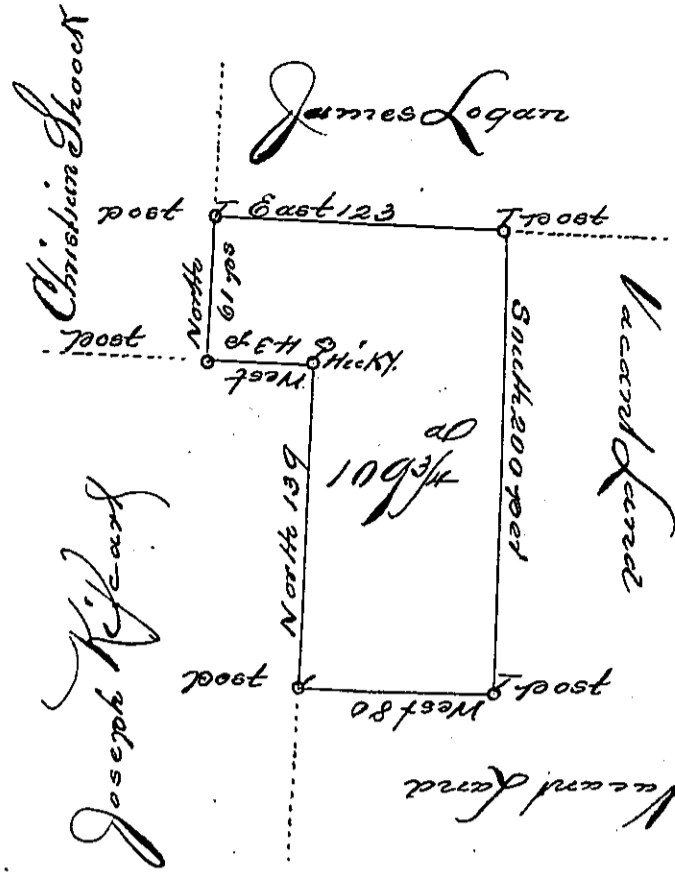 Christian Shoock
James Logan
post
East 123
post
North
61 ps
post
West
43 p
Hicky.
South 200 per
Vacant Land
North 139
109 3/4
Joseph
post
West 80
post
Vacant Land